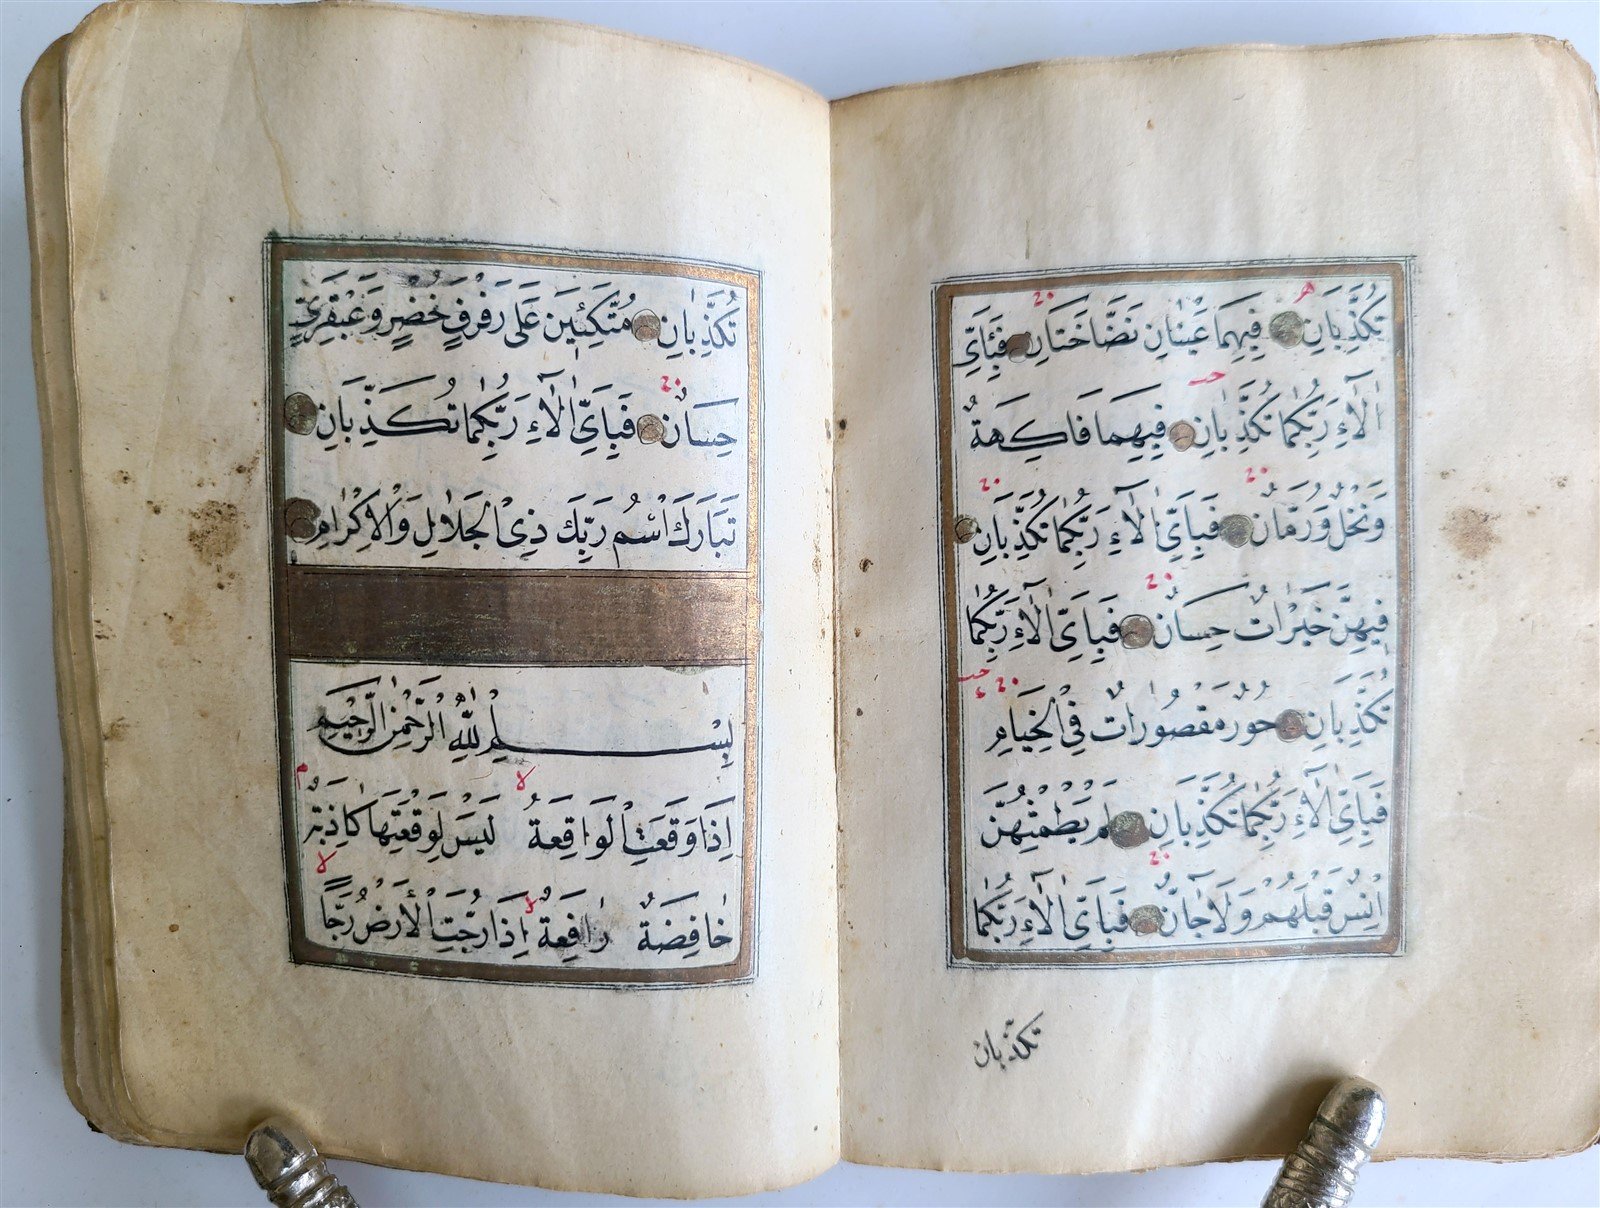 تُكَذِّبَانِ فِيهِمَا عَيْنَانِ نَضَّاخَتَانِ فَبِأَيِّ
اٰلَاءِ رَبِّكُمَا تُكَذِّبَانِ فِيهِمَا فَاكِهَةٌ
وَنَخْلٌ وَرُمَّانٌ فَبِاَيِّ اٰلَاءِ رَبِّكُمَا تُكَذِّبَانِ
فِيهِنَّ خَيْرَاتٌ حِسَانٌ فَبِاَيِّ اٰلَاءِ رَبِّكُمَا
تُكَذِّبَانِ حُورٌ مَقْصُورَاتٌ فِي الْخِيَامِ
فَبِاَيِّ اٰلَاءِ رَبِّكُمَا تُكَذِّبَانِ لَمْ يَطْمِثْهُنَّ
اِنْسٌ قَبْلَهُمْ وَلَا جَانٌّ فَبِاَيِّ اٰلَاءِ رَبِّكُمَا
تكذبان
تُكَذِّبَانِ مُتَّكِئِينَ عَلَى رَفْرَفٍ خُضْرٍ وَعَبْقَرِيٍّ
حِسَانٍ فَبِاَيِّ اٰلَاءِ رَبِّكُمَا تُكَذِّبَانِ
تَبَارَكَ اسْمُ رَبِّكَ ذِي الْجَلَالِ وَالْاِكْرَامِ
بِسْمِ اللّٰهِ الرَّحْمٰنِ الرَّحِيمِ
اِذَا وَقَعَتِ الْوَاقِعَةُ لَيْسَ لِوَقْعَتِهَا كَاذِبَةٌ
خَافِضَةٌ رَافِعَةٌ اِذَا رُجَّتِ الْاَرْضُ رَجًّا